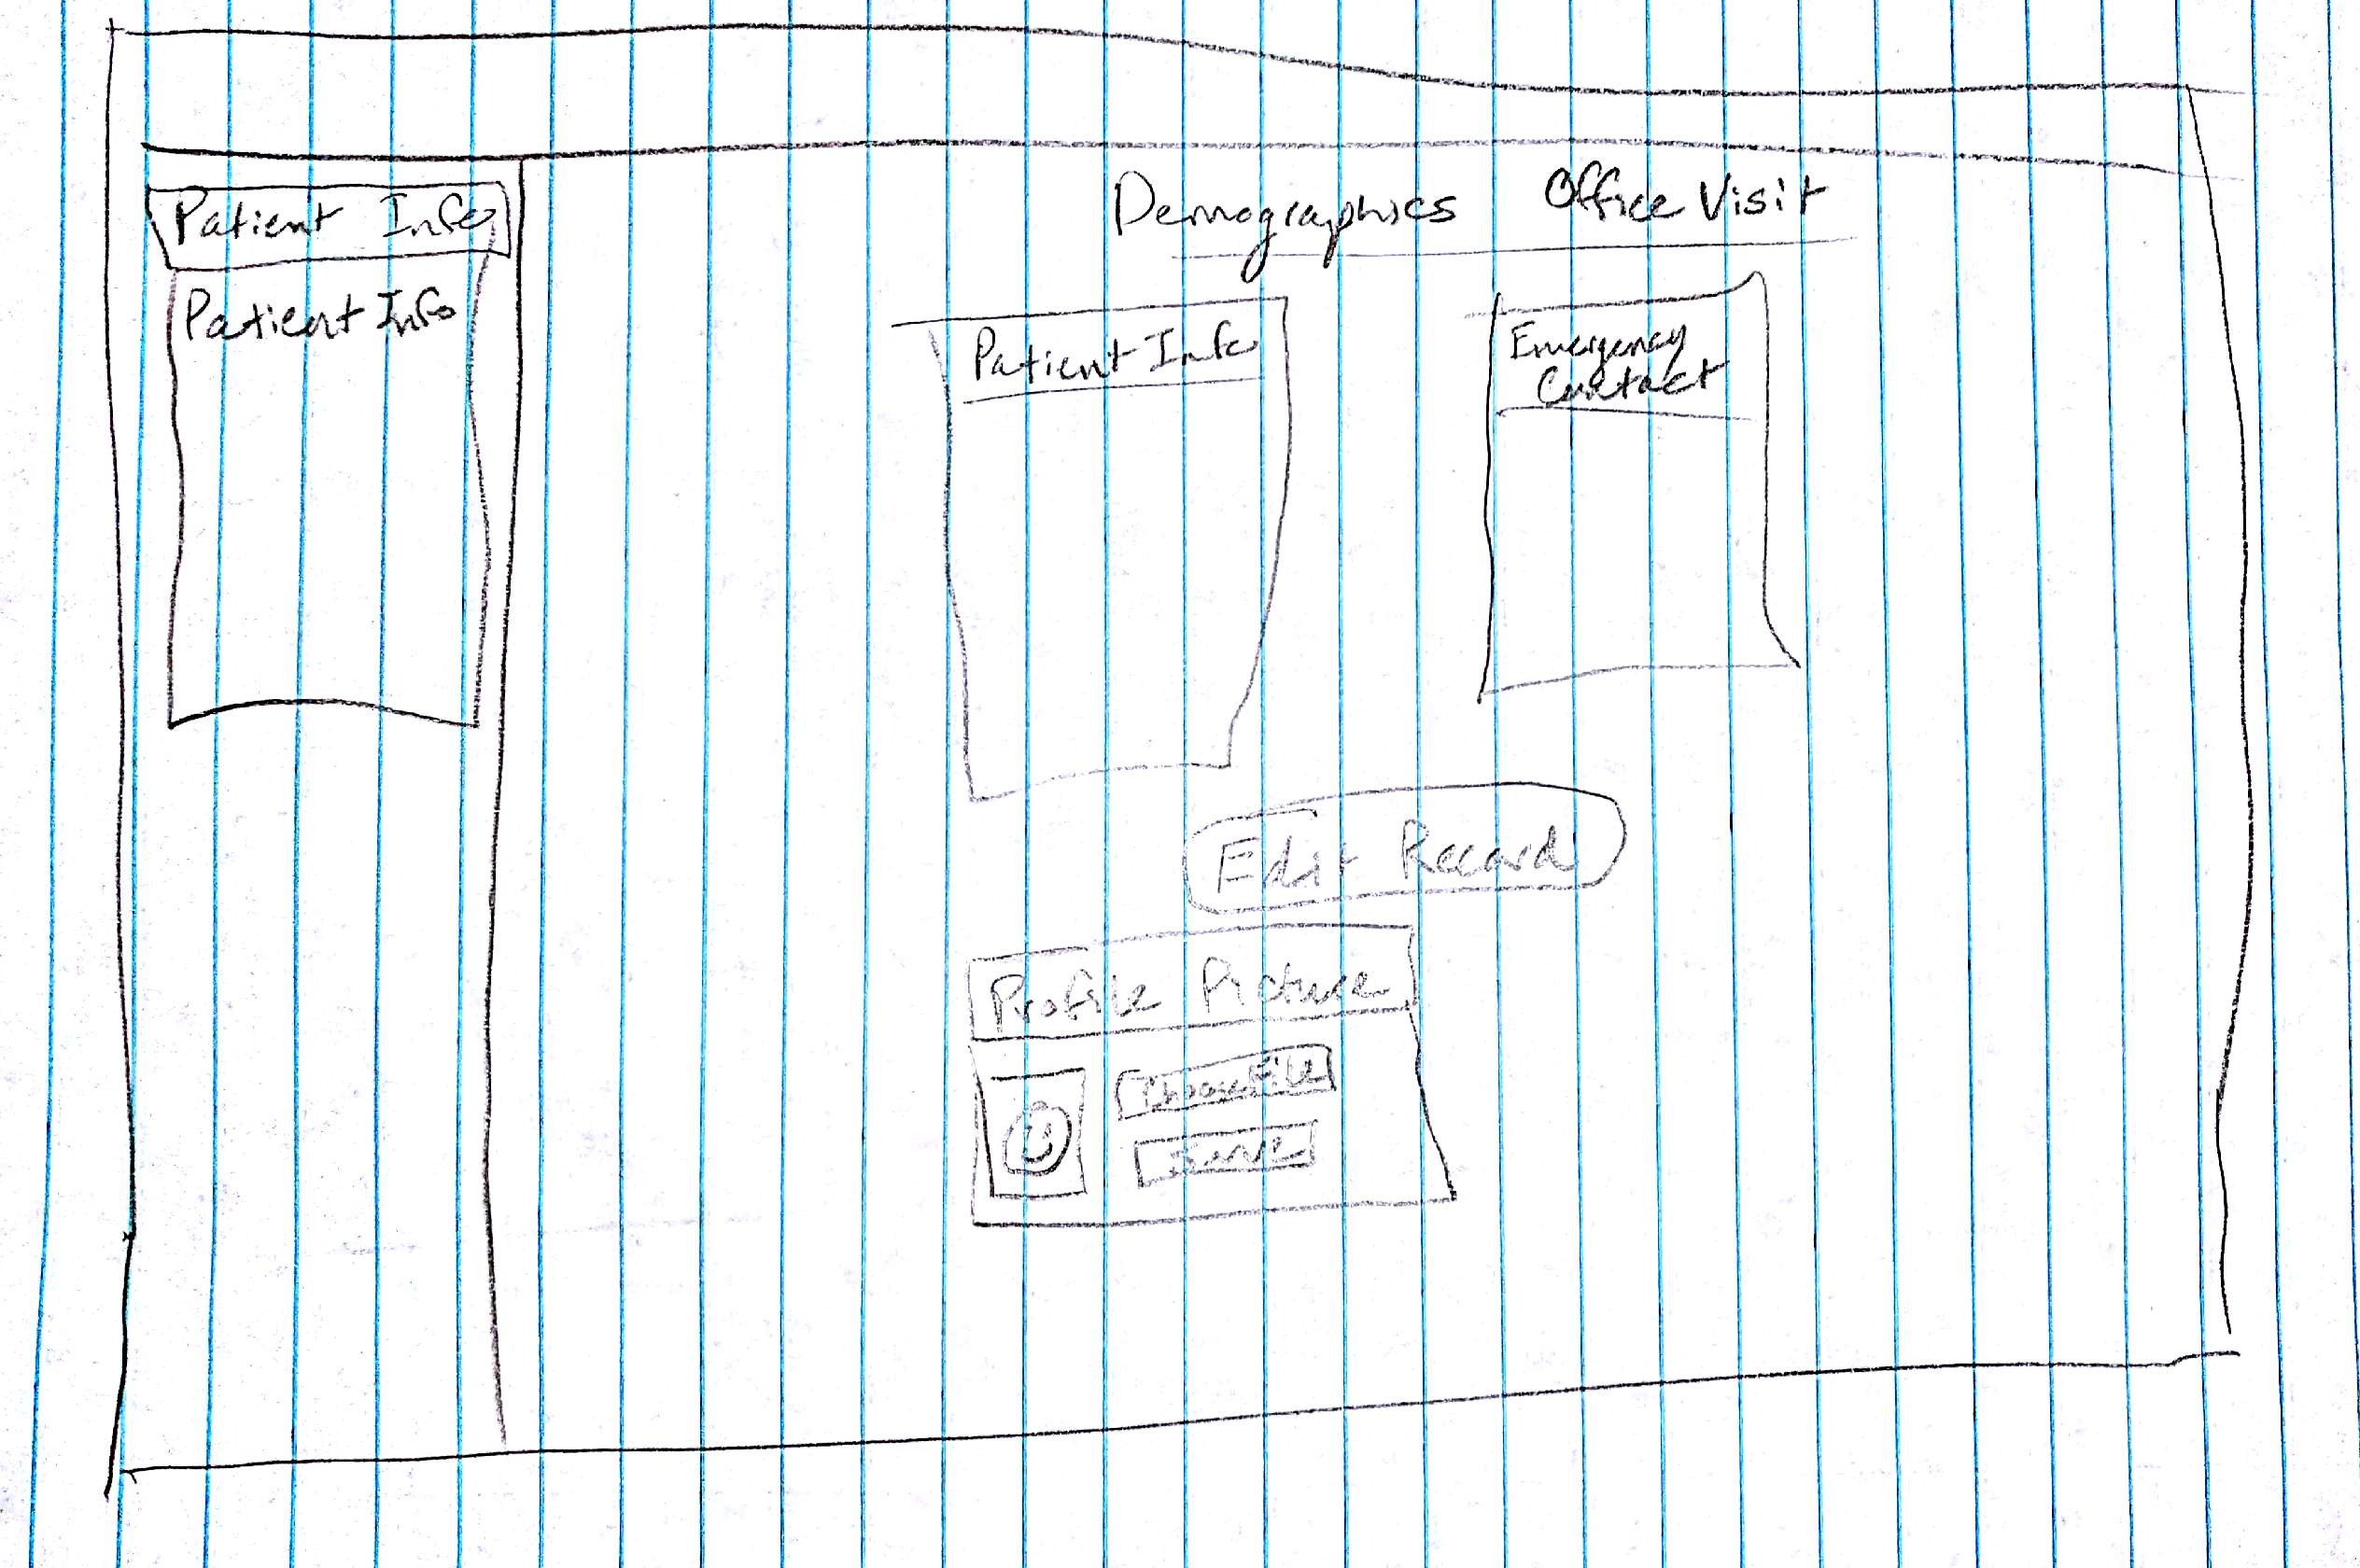 Patient Info
Patient Info
Demographics
Office Visit
Patient Info
Emergency
Contact
Edit Record
Profile Picture
Choose File
Save